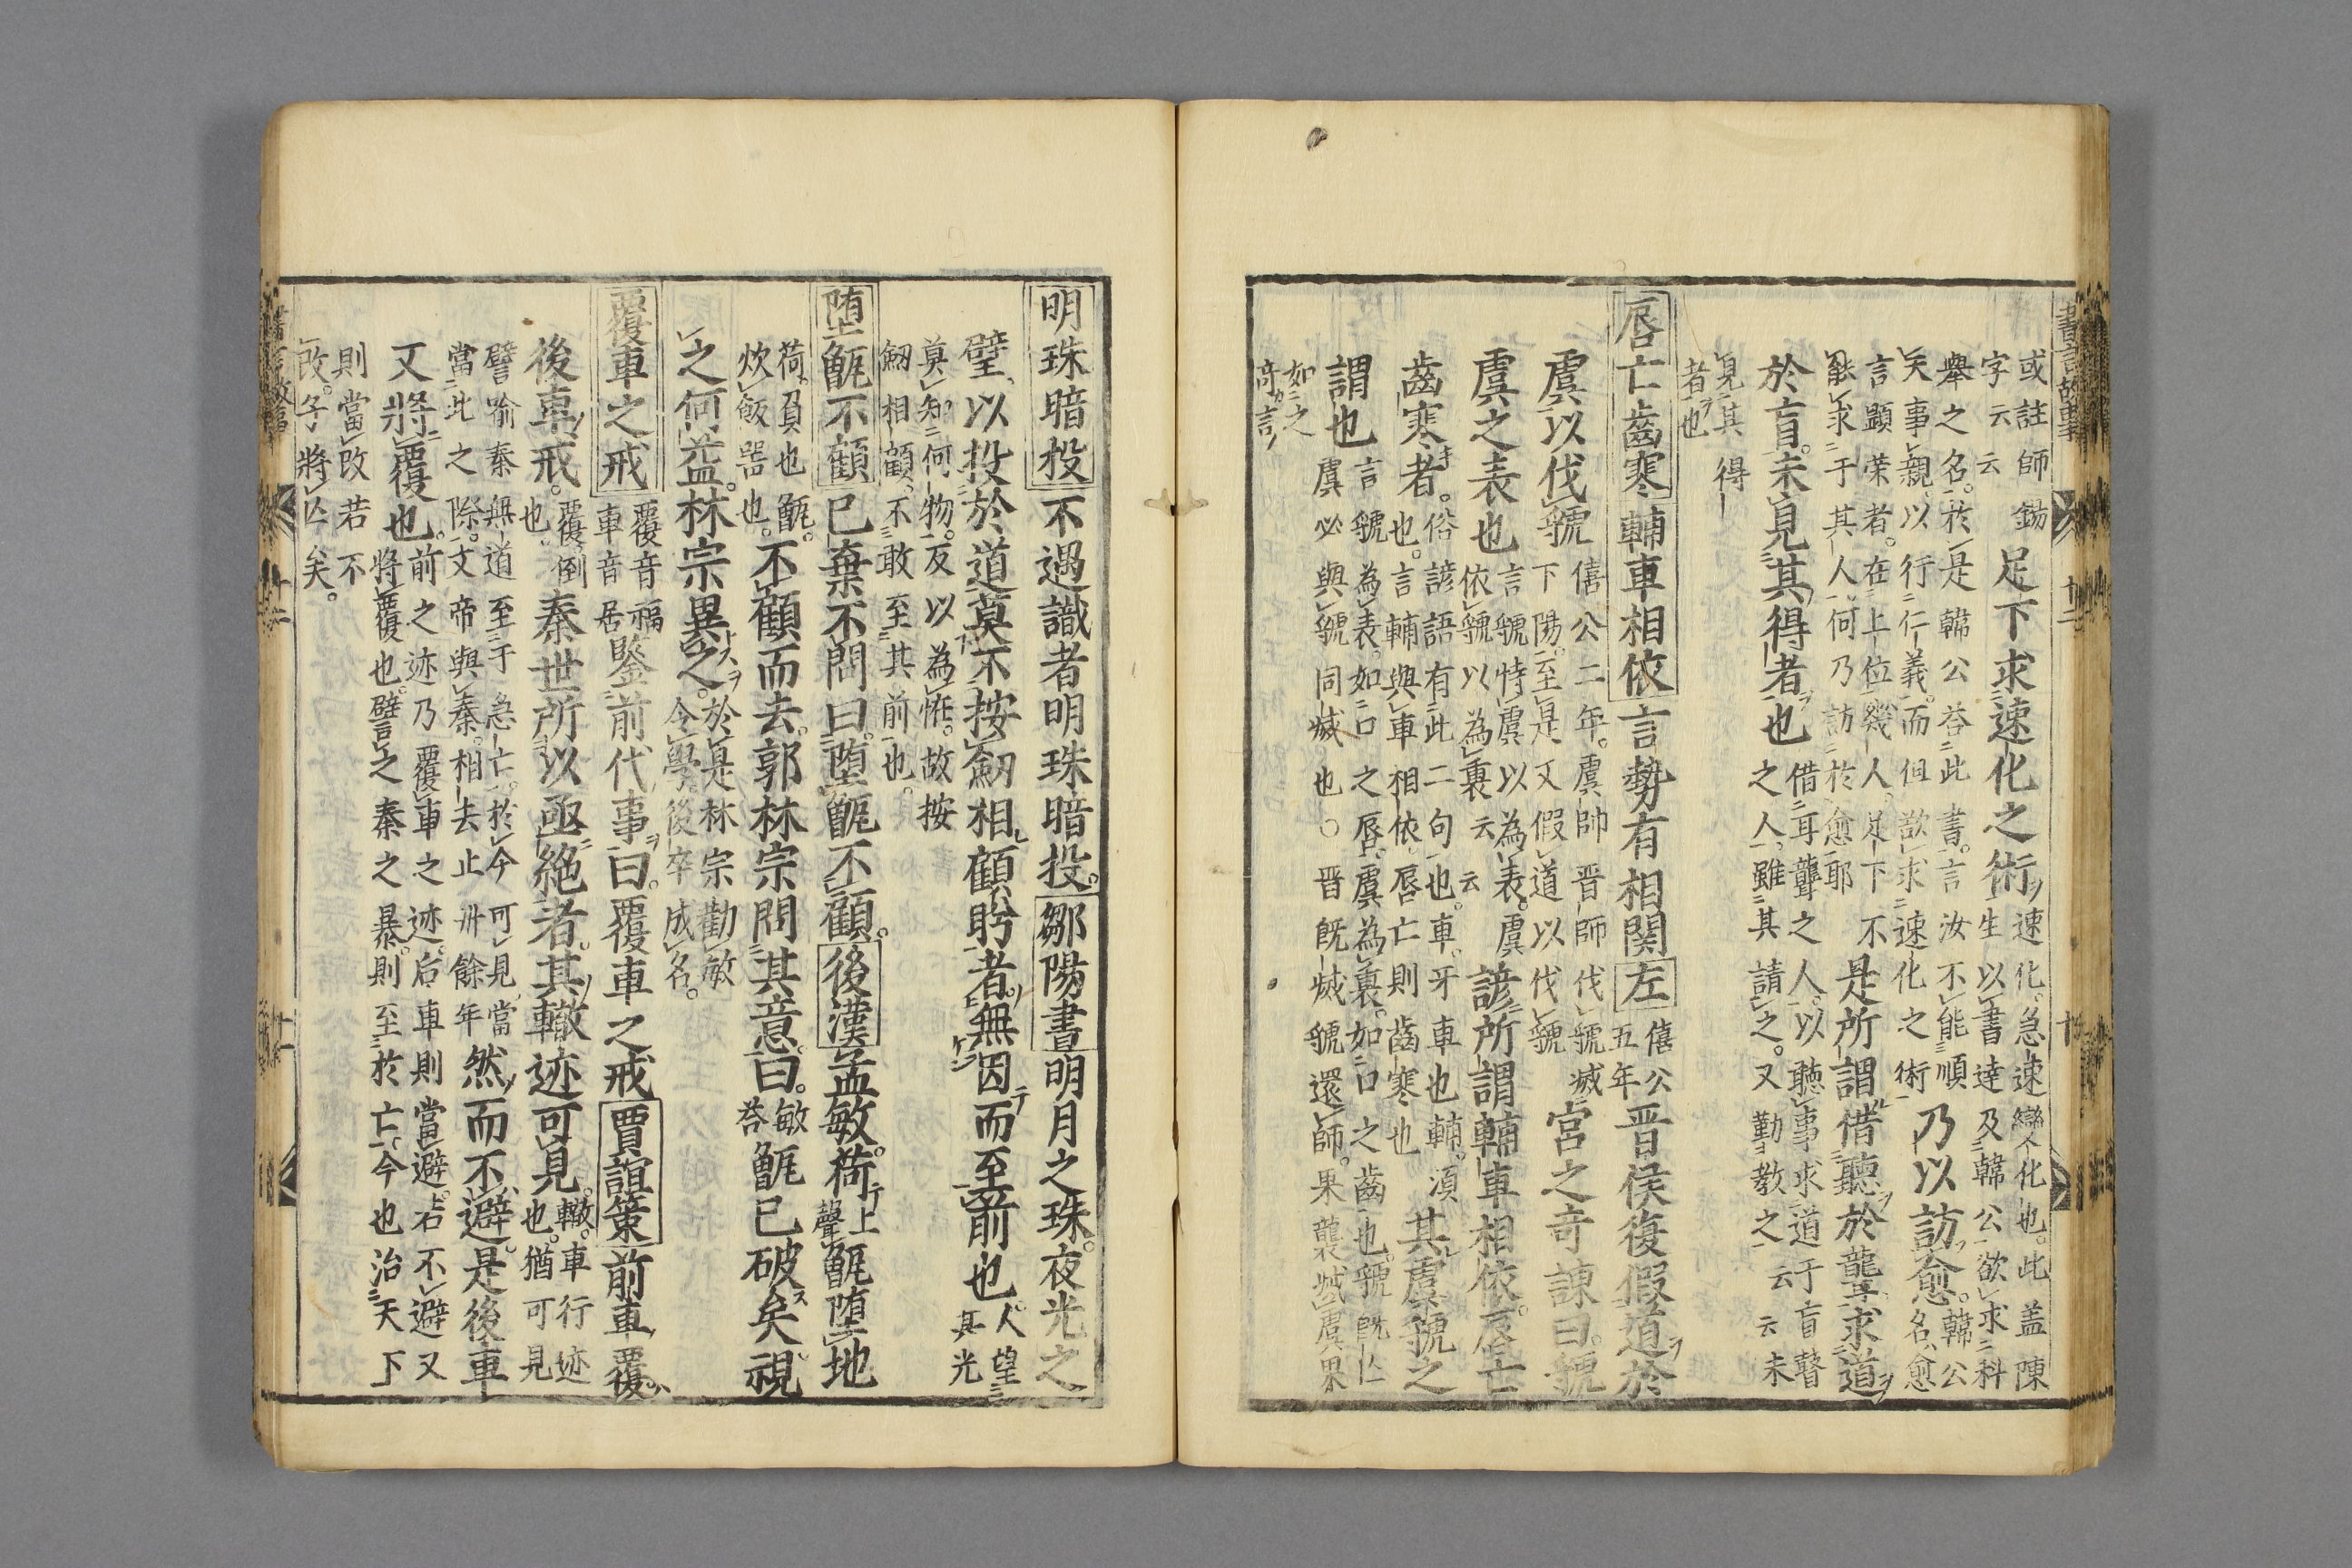 書言故事
或註師錫
字云云
足下求速化之術
速化急速變化也此盖陳
生以書達及韓公欲求科
舉之名於是韓公荅此書言汝不能順
天事親以行仁義而但欲求速化之術
乃以訪愈
韓公
名愈
言顯荣者在上位幾人足下不
能求于其人何乃訪於愈耶
是所謂借聽於聾求道
於盲未見其得者也
借耳聾之人以聽事求道于盲瞽
之人雖其請之又勤教之云云未
見其得
者也
唇亡齒寒輔車相依言勢有相関左
僖公
五年
晋侯復假道於
虞以伐虢
僖公二年虞師晋師伐虢滅
下陽至是又假道以伐虢
宮之奇諫曰虢
虞之表也
言虢恃虞以為表虞
依虢以為裏云云
諺所謂輔車相依唇亡
齒寒者
俗諺語有此二句也車牙車也輔湏
也言輔與車相依唇亡則齒寒也
其虞虢之
謂也
言虢為表如口之唇虞為裏如口之齒也虢既亡
虞必與虢同滅也○晋既滅虢還師果襲滅虞果
如之
奇言
明珠暗投不遇識者明珠暗投鄒陽書明月之珠夜光之
璧以投於道莫不按劒相顧眄者無因而至前也
人望
其光
莫知何物反以為恠故按
劒相顧不敢至其前也
堕甑不顧已棄不問曰堕甑不顧後漢孟敏荷
上
聲
甑堕地
荷負也甑
炊飯噐也
不顧而去郭林宗問其意曰
敏
荅
甑已破矣視
之何益林宗異之
於是林宗勸敏
令學後卒成名
覆車之戒
覆音福
車音居
鑒前代事曰覆車之戒賈誼策前車覆
後車戒
覆倒
也
秦世所以亟絕者其轍迹可見
轍車行迹
也猶可見
譬喻秦無道至于急亡於今可見當
當此之際文帝與秦相去止卅餘年
然而不避是後車
又將覆也
前之迹乃覆車之迹后車則當避若不避又
將覆也譬之秦之暴則至於亡今也治天下
則當改若不
改子將亡矣